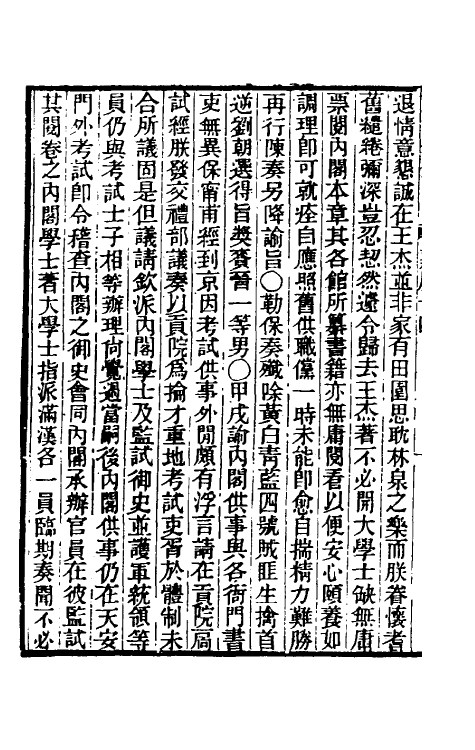 退情意懇誠在王杰並非家有田園思耽林泉之樂而朕眷懷耆
舊繾綣彌深豈忍恝然遽令歸去王杰著不必開大學士缺無庸
票閱內閣本章其各館所纂書籍亦無庸閱看以便安心頤養如
調理即可就痊自應照舊供職儻一時未能即愈自揣精力難勝
再行陳奏另降諭旨○勒保奏殲除黃白靑藍四號賊匪生擒首
逆劉朝選得旨獎賚晉一等男○甲戌諭內閣供事與各衙門書
吏無異保甯甫經到京因考試供事外閒頗有浮言請在貢院扃
試經朕發交禮部議奏以貢院爲掄才重地考試吏胥於體制未
合所議固是但議請欽派內閣學士及監試御史並護軍統領等
員仍與考試士子相等辦理尙覺過當嗣後內閣供事仍在天安
門外考試即令稽查內閣之御史會同內閣承辦官員在彼監試
其閱卷之內閣學士著大學士指派滿漢各一員臨期奏聞不必